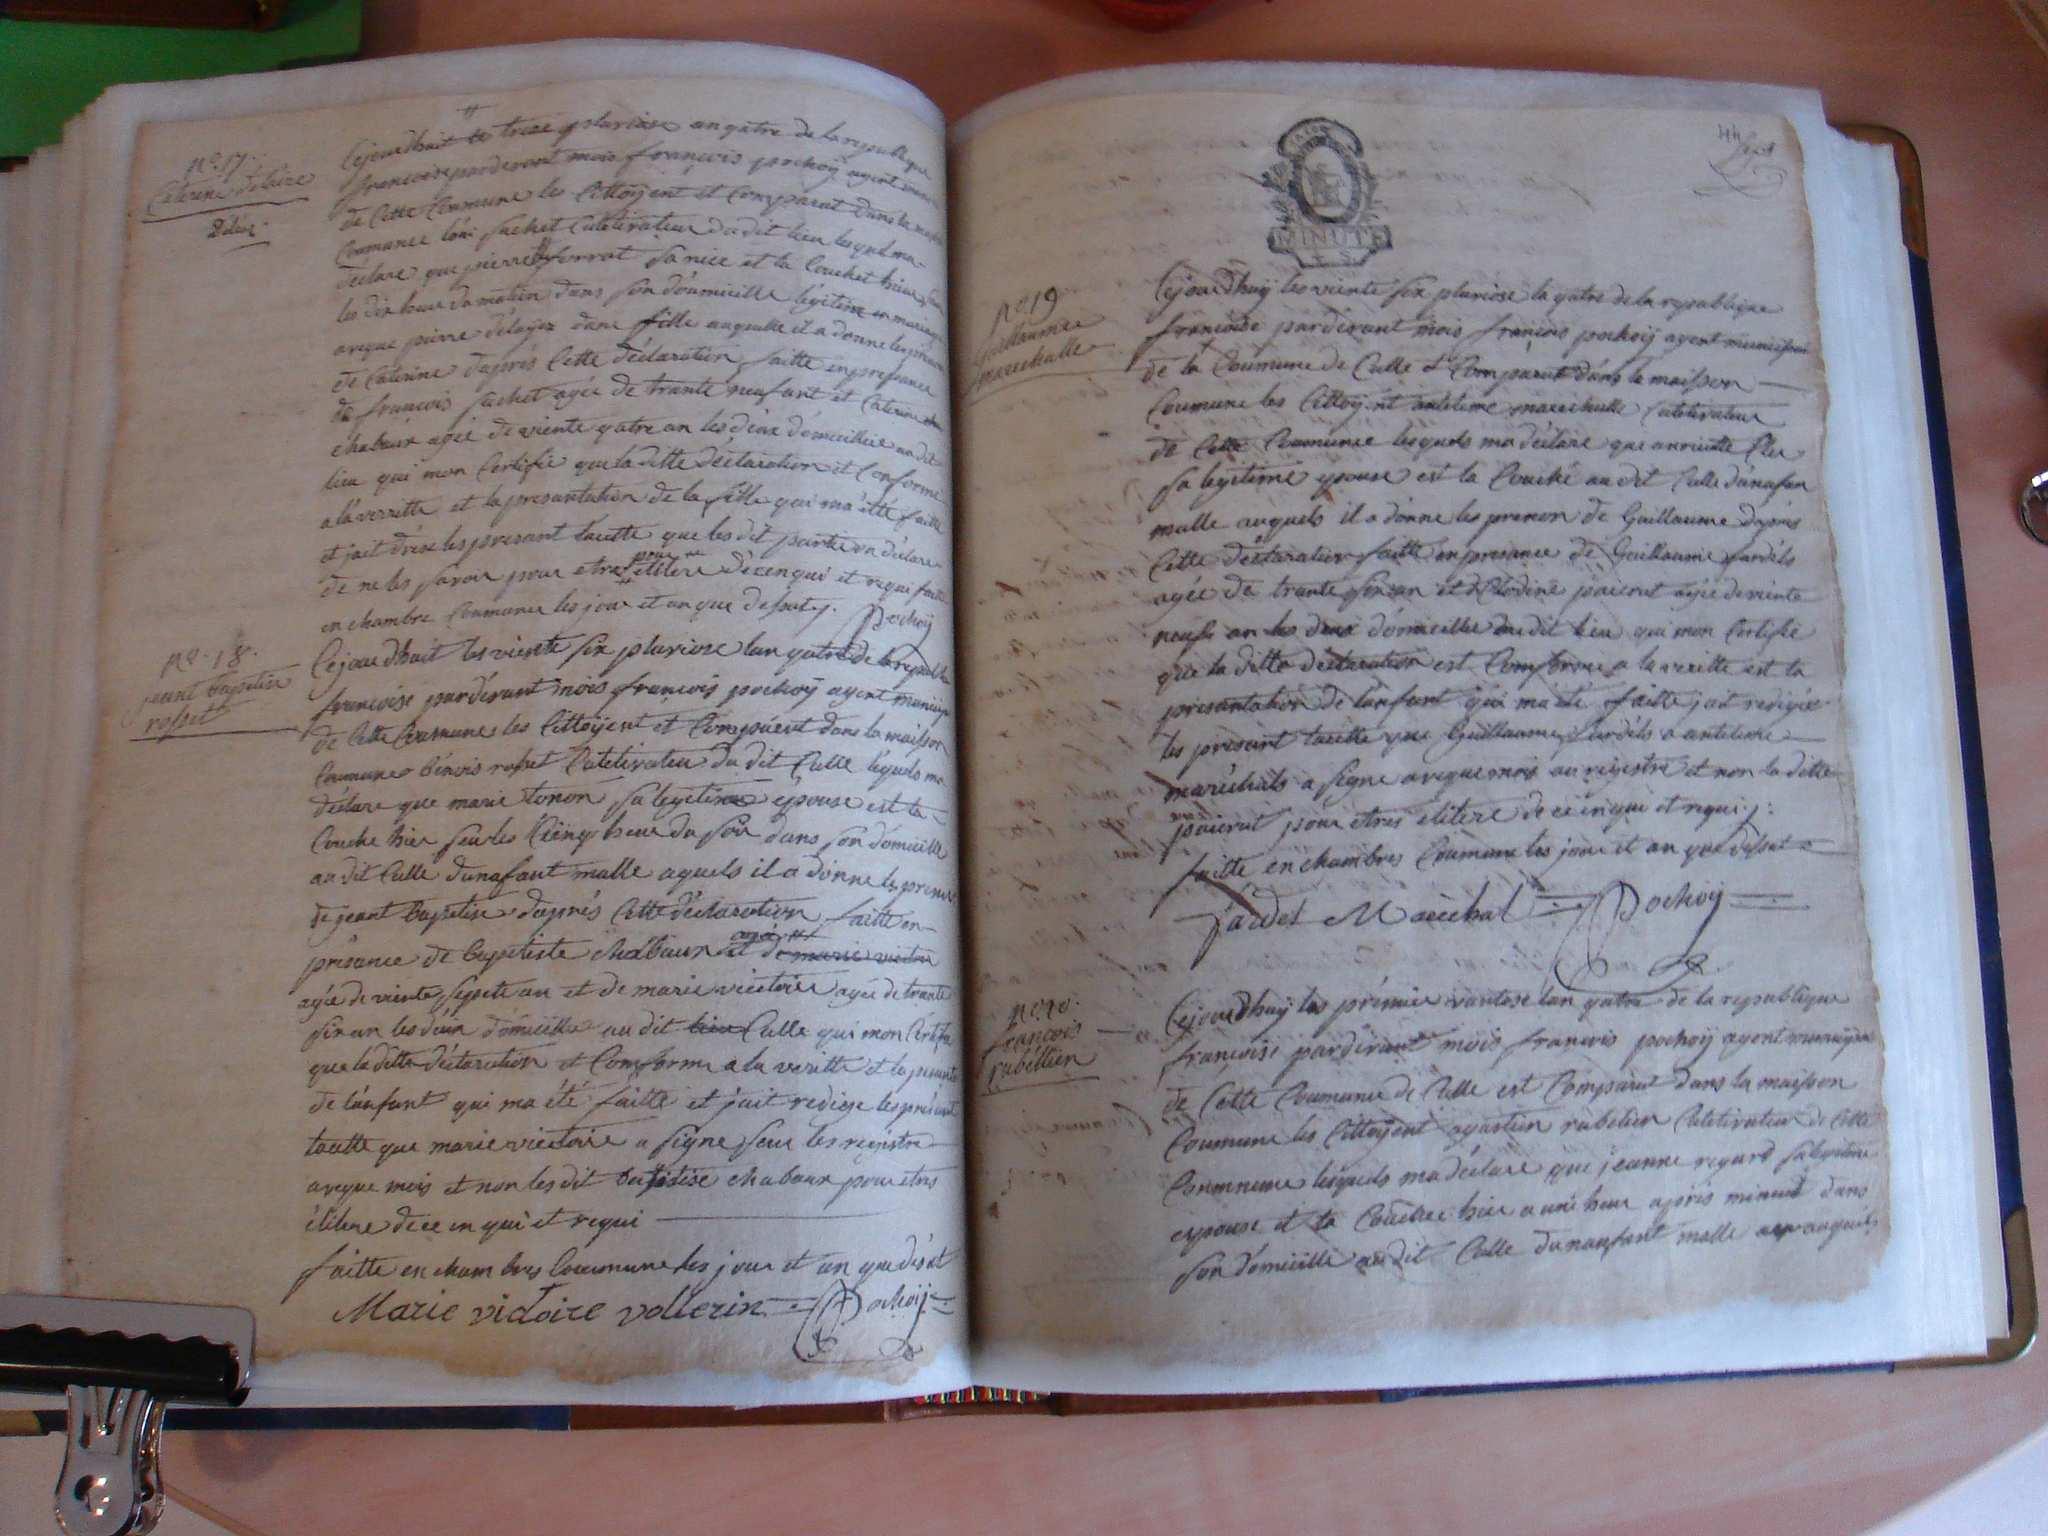 no. 17.
Caterine delaize
Déléoz
Cejourdhuit le treze pluviose an quatre de la republique
francoise pardevant mois françois pochoÿ agent
de Cette Commune les Cittoÿent et Comparut dans la
Coumunce loui sachet Cutetivateur dudit lieu lesquel ma
declare que pierre sa nice et la Couchet hier
les dix heur du matin dans son doumicille légitime en mariage
aveque pierre dans fille auquelle il a donne les prenom
de Caterine daprés Cette déclaration faitte en presance
de françois sachet agée de trante neuf ant et Caterine
chabaux agee de viente quatre an les deux domicillie audit
lieu qui mon Certifie que la ditte déclaration et Conforme
a la verritte et la presantation de la fille qui ma été faitte
et jait drese les presant lacette que les dit partie on déclare
de ne les savoir pour etre elitere de cenqui et requi faitte
en chambre Coumune les jour et an que dessut j. Pochoÿ
no. 18.
jeant baptise
rosset
Cejourdhuit les viente six pluviose lan quatre de la republi
françoise pardevant mois françois pochoÿ agent municipa
de Cette Coumune les Cittoÿent et Comparent dans la maisson
Coumune benois roset Cutetivateu du dit Culle lequels ma
déclare que marie tonon sa legetime épouse est la
Couche hier seur les Cienq heur du soir dans son domicille
au dit Culle dunafant malle aquels il a donne le prenom
de jeant baptise daprés Cette déclaration faitte en
présance de baptiste chabaux et de marie victoi
agée de viente sepette an et de marie victoire agée de trante
six an les deux domicille au dit lieu Culle qui mon Certifie
que la ditte déclaration et Comforme a la veritte et la presanta
de lanfant qui ma été faitte et jait redige les présant
lacette que marie victoire a signe seur les regestre
aveque mois et non les dit batistise chabaux pour etres
élitere de ce en qui et requi
faitte en chambres Coumune les jour et an que désut
Marie victoire vollerin Pochoÿ
44
MINUTE
no. 19
Guillaumee
marechalle
Cejourdhuÿ les viente six pluviose la quatre de la republique
francoise pardevant mois françois pochoÿ agent municipal
de la Coumune de Culle et Comparut dans le maisson
Coumune les Cittoÿent anteleme marechalle Cutetivateur
de Cette Coumunee lesquels ma déclare que
sa legitime epouse est la Couché au dit Culle dunafan
malle auquels il a donne les prenon de Guillaume daprés
Cette déclaration faitte en presance de Guillaume jardéls
agée de trante six an et Clodine paierat agée de viente
neufe an les deux domicille du dit lieu qui mon Certifie
que la ditte déclaration est Comforme a la veritte est la
presantation de lanfant qui ma été faitte jait redigée
les presant lacette que Guillaume jardéls a anteleme
maréchals a signe aveque mois au regestre et non la ditte
paierat pour etres elitere de ce en qui et requi j:
faitte en chambres Coumune les jour et an que dessut
jardel Maréchal Pochoÿ
no. 20.
françois
rubellien
Cejourdhuÿ les prémier vantose lan quatre de la republique
françoise pardevant mois françois pochoÿ agent municipal
de Cette Coumunee de Culle est Comparut dans la maisson
Coumune les Cittoÿent rubelien Cutetivateur de Cette
Commune lequels ma déclare que jeanne regard sa legitime
epouse et la Couchee hier a une heur aprés minuit dans
son domicille au dit Culle dunanfant malle auquels